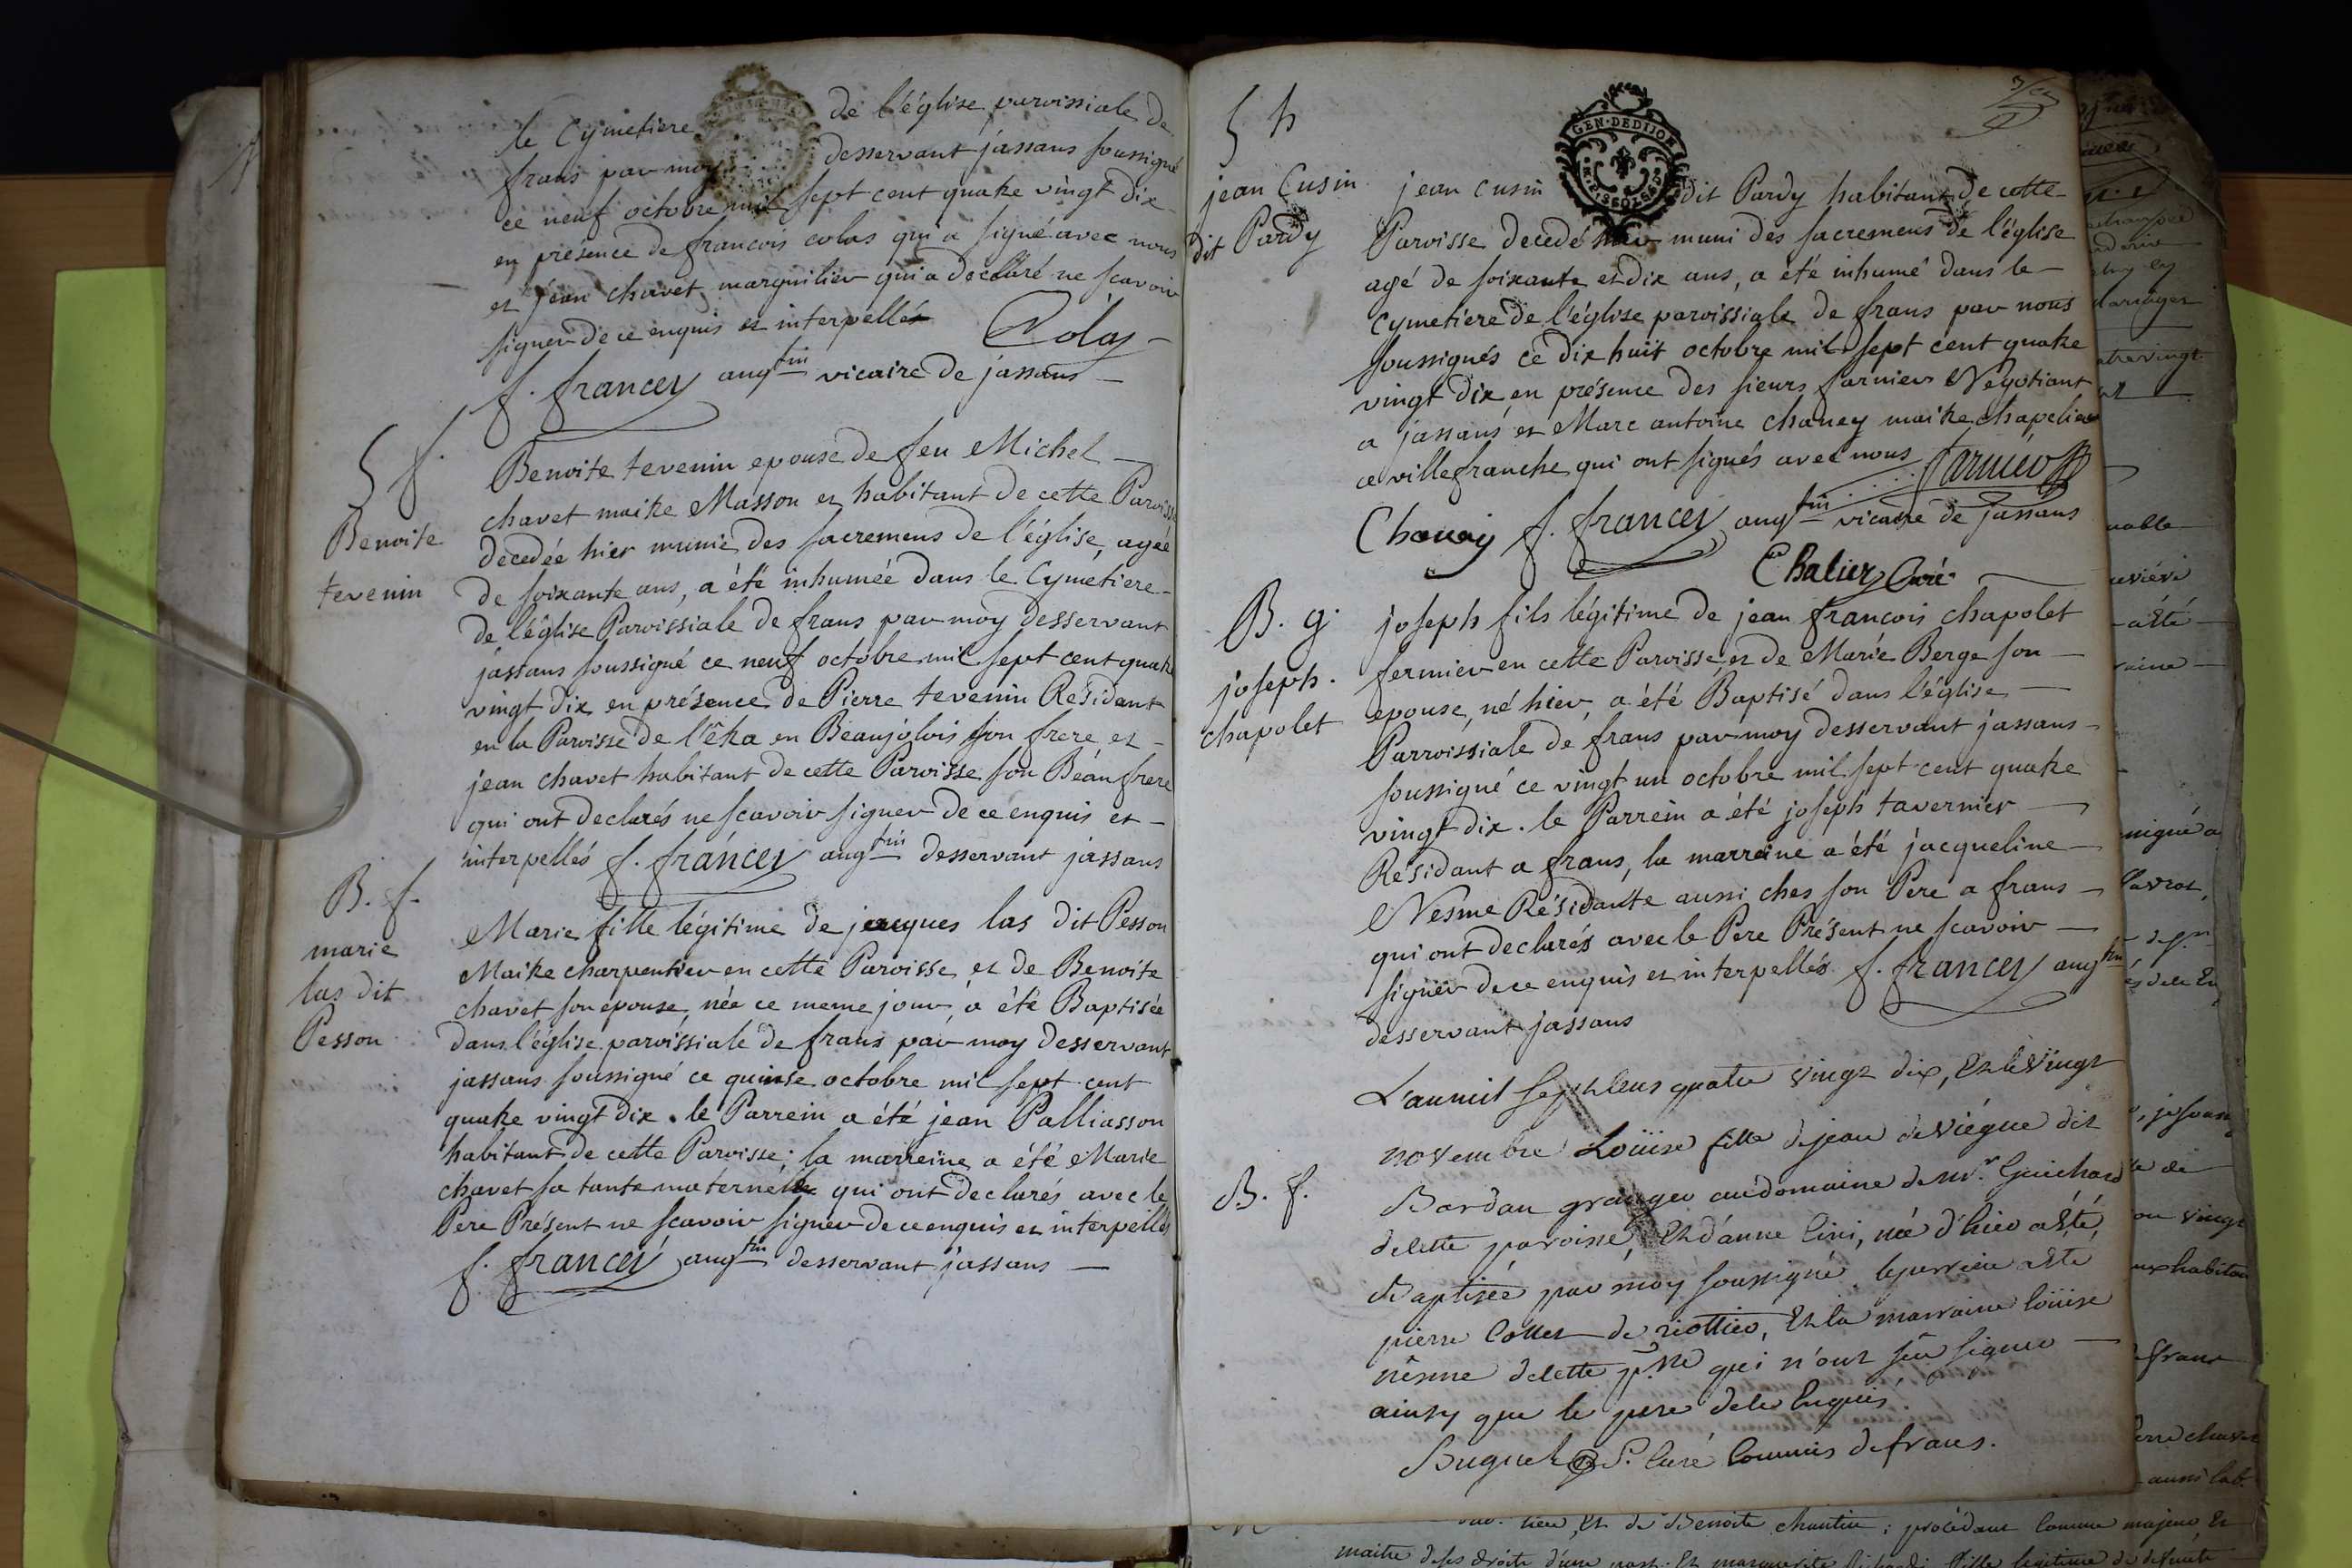 le Cymetiere de l'église paroissiale de
frans par moy desservant jassans soussigné
ce neuf octobre mil sept cent quatre vingt dix
en présence de francois colas qui a signé avec nous
et jean chavet marguilier qui a declaré ne scavoir
signer de ce enquis et interpellés Colas
f. francey augtin vicaire de jassans
S f.
Benoite
tevenin
Benoite tevenin epouse de feu Michel
chavet maitre Masson et habitant de cette Paroisse
decedée hier munie des sacremens de l'église, agée
de soixante ans, a été inhumée dans le Cymetiere
de l'église Paroissiale de frans par moy desservant
jassans soussigné ce neuf octobre mil sept cent quatre
vingt dix en présence de Pierre tevenin Résidant
en la Paroisse de l'êtra en Beaujolois son frere et
jean chavet habitant de cette Paroisse son Beau frere
qui ont declarés ne scavoir signer de ce enquis et
interpellés f. francey augtin desservant jassans
B. f.
marie
las dit
Pesson
Marie fille légitime de jacques las dit Pesson
Maitre charpentier en cette Paroisse et de Benoite
chavet son epouse, née ce meme jour, a été Baptisée
dans l'église paroissiale de frans par moy desservant
jassans soussigné ce quinse octobre mil sept cent
quatre vingt dix. le Parrein a été jean Palliasson
habitant de cette Paroisse; la marreine a été Marie
chavet sa tante maternelle qui ont declarés avec le
Pere Présent ne scavoir signer de ce enquis et interpellés
f. francey augtin desservant jassans
S h
jean Cusin
dit Pardy
GEN. DE DIJON
jean cusin dit Pardy habitant de cette
Paroisse decedé hier muni des sacremens de l'église
agé de soixante et dix ans, a été inhumé dans le
Cymetiere de l'église paroissiale de frans par nous
soussignés ce dix huit octobre mil sept cent quatre
vingt dix en présence des sieurs farnier Negotiant
a jassans et Marc antoine chaney maitre chapelier
a villefranche qui ont signés avec nous farnier
Chanay f. francey augtin vicaire de jassans
Chalier Curé
B. g.
joseph.
chapolet
joseph fils légitime de jean francois chapolet
fermier en cette Paroisse et de Marie Berge son
epouse, né hier, a été Baptisé dans l'église
Parroissiale de frans par moy desservant jassans
soussigné ce vingt un octobre mil sept cent quatre
vingt dix. le Parrein a été joseph tavernier
Résidant a frans, la marreine a été jacqueline
Nesme Résidante aussi ches son Pere a frans
qui ont declarés avec le Pere Présent ne scavoir
signer de ce enquis et interpellés f. francey augtin
desservant jassans
B. f.
L'anmil sept cens quatre vingt dix, et le vingt
novembre Loüise fille de jean deviégue dit
Bardau granger audomaine de mr. Guichard
de cette paroisse, et d'anne Cini, née d'hier a eté
Baptisée par moy soussigné le parrein a eté
pierre Collet de riottier, et la marraine loüise
nêsme de cette p.sse qui n'ont sçu signer
ainsy que le pere de ce Enquis.
Buguet P. Curé Commis de frans.